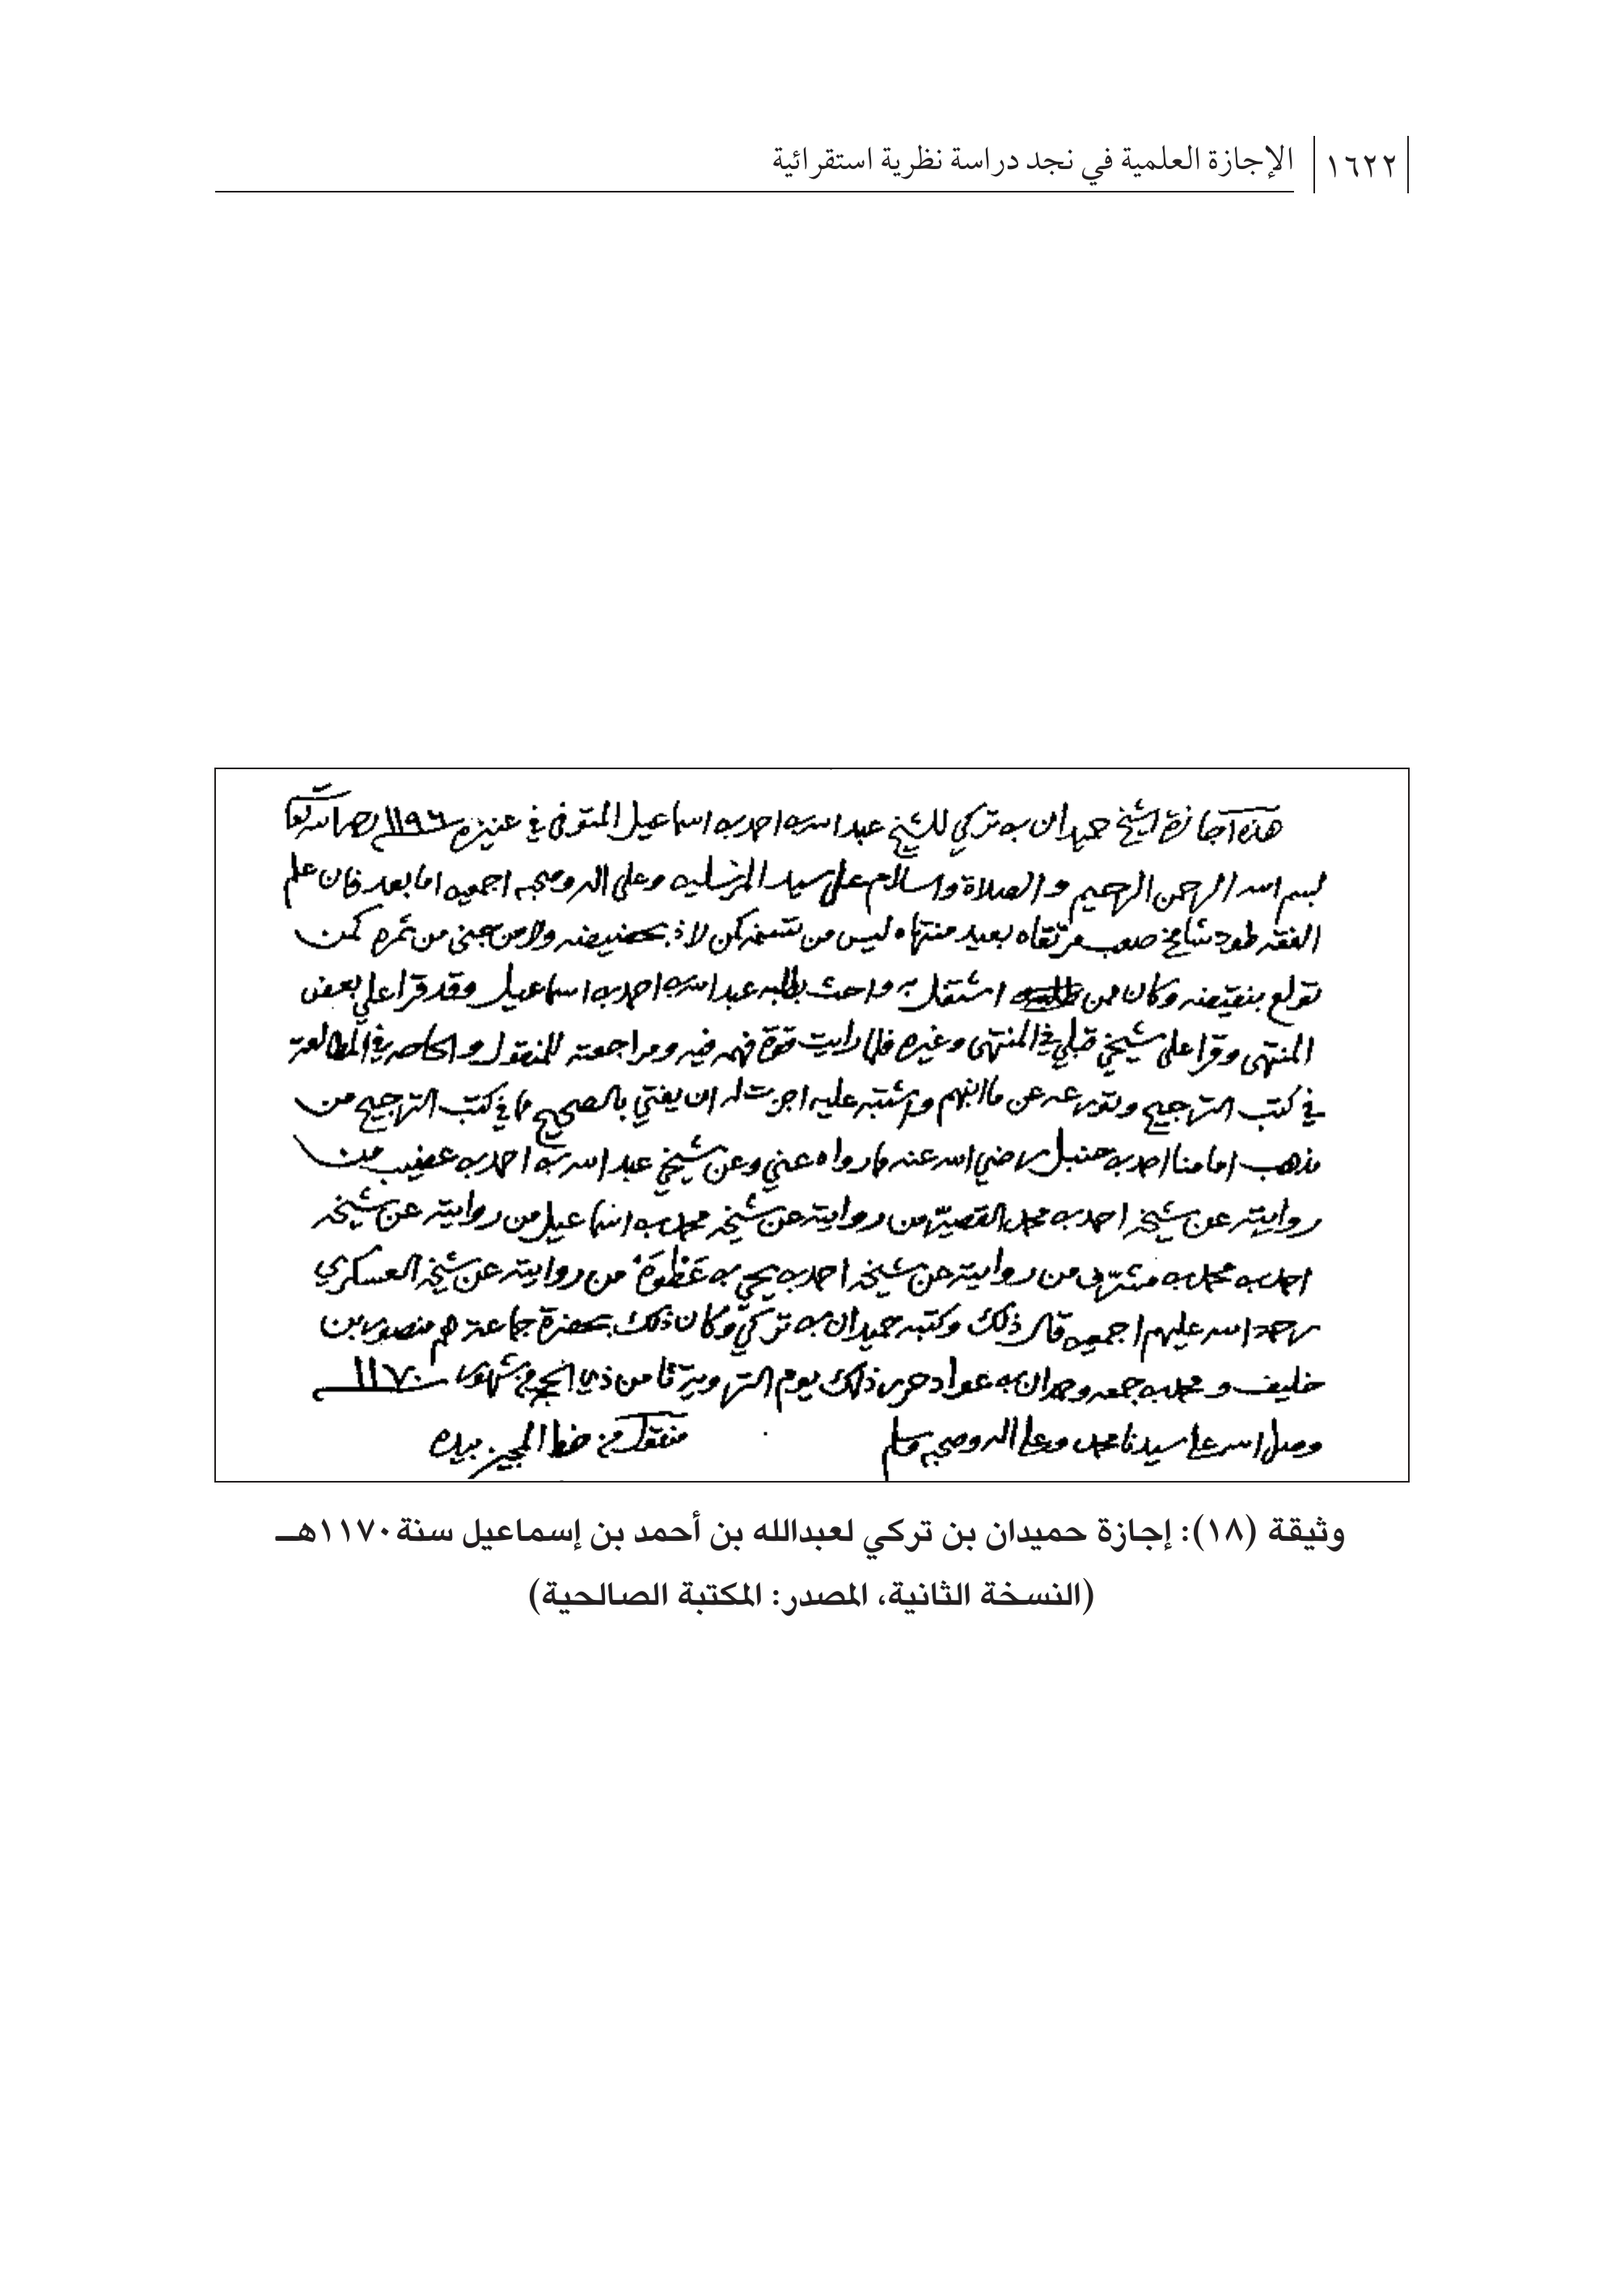 ١٦٢٢ الإجازة العلمية في نجد دراسة نظرية استقرائية
هذه اجازة الشيخ حميدان بن تركي للشيخ عبد الله بن احمد بن اسماعيل المتوفى في عنيزه ١١٩٦ رحمها الله تعا
بسم الله الرحمن الرحيم والصلاة والسلام على سيد المرسلين وعلى اله وصحبه اجمعين اما بعد فان علم
الفقه طود شامخ صعب مرتقاه بعيد منتهاه ليس من تسنمه كمن لاذ بحضيضه ولا من جنى من ثمره كمن
تولع بنقيضه وكان ممن اشتغل به واحث بطلبه عبد الله بن احمد بن اسماعيل وقد قرا علي بعض
المنتهى وقرا على شيخي قبلي في المنتهى وغيره فلما رايت قوة فهمه فيه ومراجعته للمنقول والحاصر في المطالعة
في كتب الترجيح وتورعه عن ما ابهم واشتبه عليه اجزت له ان يفتي بالصحيح مما في كتب الترجيح من
مذهب امامنا احمد بن حنبل رضي الله عنه مما رواه عني وعن شيخي عبد الله بن احمد بن عضيب من
روايته عن شيخه احمد بن محمد القصير من روايته عن شيخه محمد بن اسماعيل من روايته عن شيخه
احمد بن محمد بن مشرف من روايته عن شيخه احمد بن يحيى بن عطوة من روايته عن شيخه العسكري
رحمة الله عليهم اجمعين قال ذلك وكتبه حميدان بن تركي وكان ذلك بحضرة جماعة هم منصور بن
خليف و محمد بن جمعه وحمدان بن عواد حرر ذلك يوم التروية ثامن ذي الحجه من شهور سنة ١١٧٠
وصلى الله على سيدنا محمد وعلى اله وصحبه وسلم منقول من خط المجيز بيده
وثيقة (١٨): إجازة حميدان بن تركي لعبدالله بن أحمد بن إسماعيل سنة ١١٧٠هـ
(النسخة الثانية، المصدر: المكتبة الصالحية)